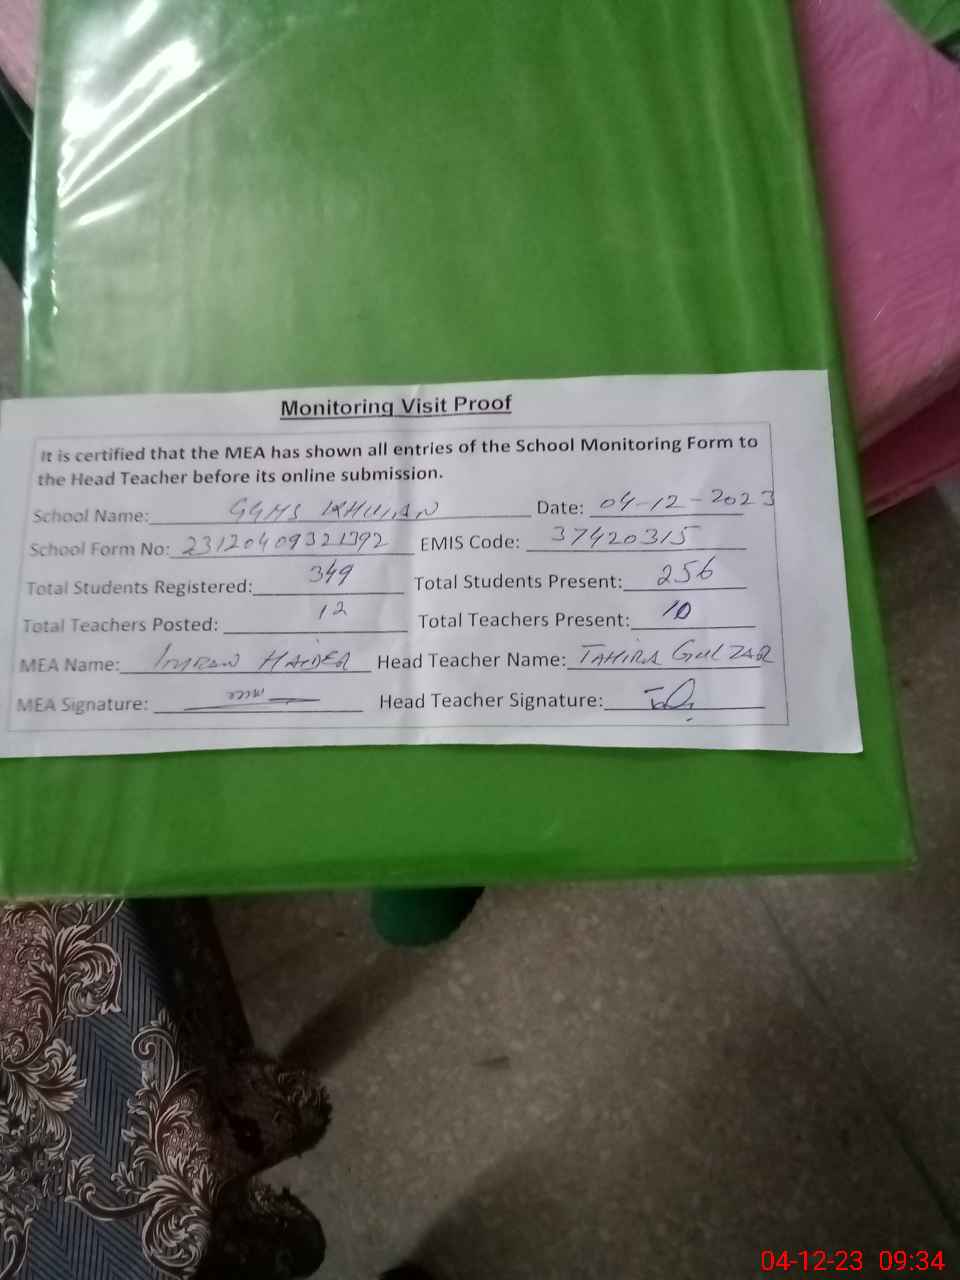 Monitoring Visit Proof
It is certified that the MEA has shown all entries of the School Monitoring Form to
the Head Teacher before its online submission.
School Name: GGHS KHUIAN Date: 04-12-2023
School Form No: EMIS Code: 37420315
Total Students Registered: 349 Total Students Present: 256
Total Teachers Posted: 12 Total Teachers Present: 10
MEA Name: IMRAN HAIDER Head Teacher Name: TAHIRA GULZAR
MEA Signature: Head Teacher Signature:
04-12-23 09:34